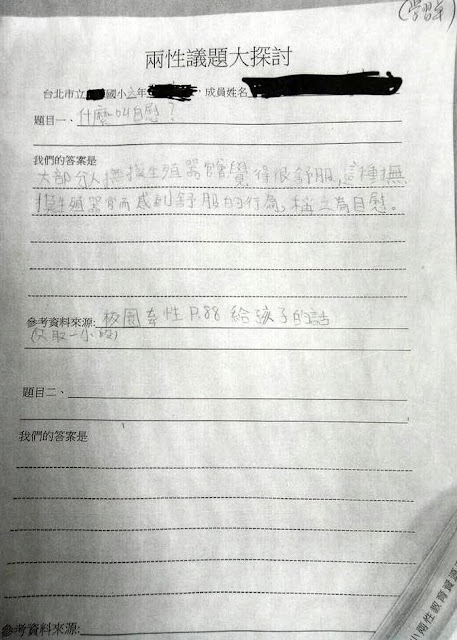 (學習單)
兩性議題大探討
台北市立 國小 年 ,成員姓名
題目一、什麼叫自慰?
我們的答案是
大部分人撫摸生殖器官會覺得很舒服,這種撫
摸生殖器官而感到舒服的行為,稱之為自慰。
參考資料來源: 校園 性 P.88 給孩子的話
(只取一小段)
題目二、
我們的答案是
參考資料來源:
小兩性教育資源